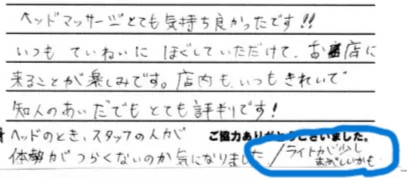 ヘッドマッサージとても気持ち良かったです!!
いつもていねいにほぐしていただけて、お店に
来ることが楽しみです。店内もいつもきれいで
知人のあいだでもとても評判です!
ヘッドのとき、スタッフの人が
ご協力ありがとうございました。
体勢がつらくないのか気になりました
ライトが少し
まぶしいかも